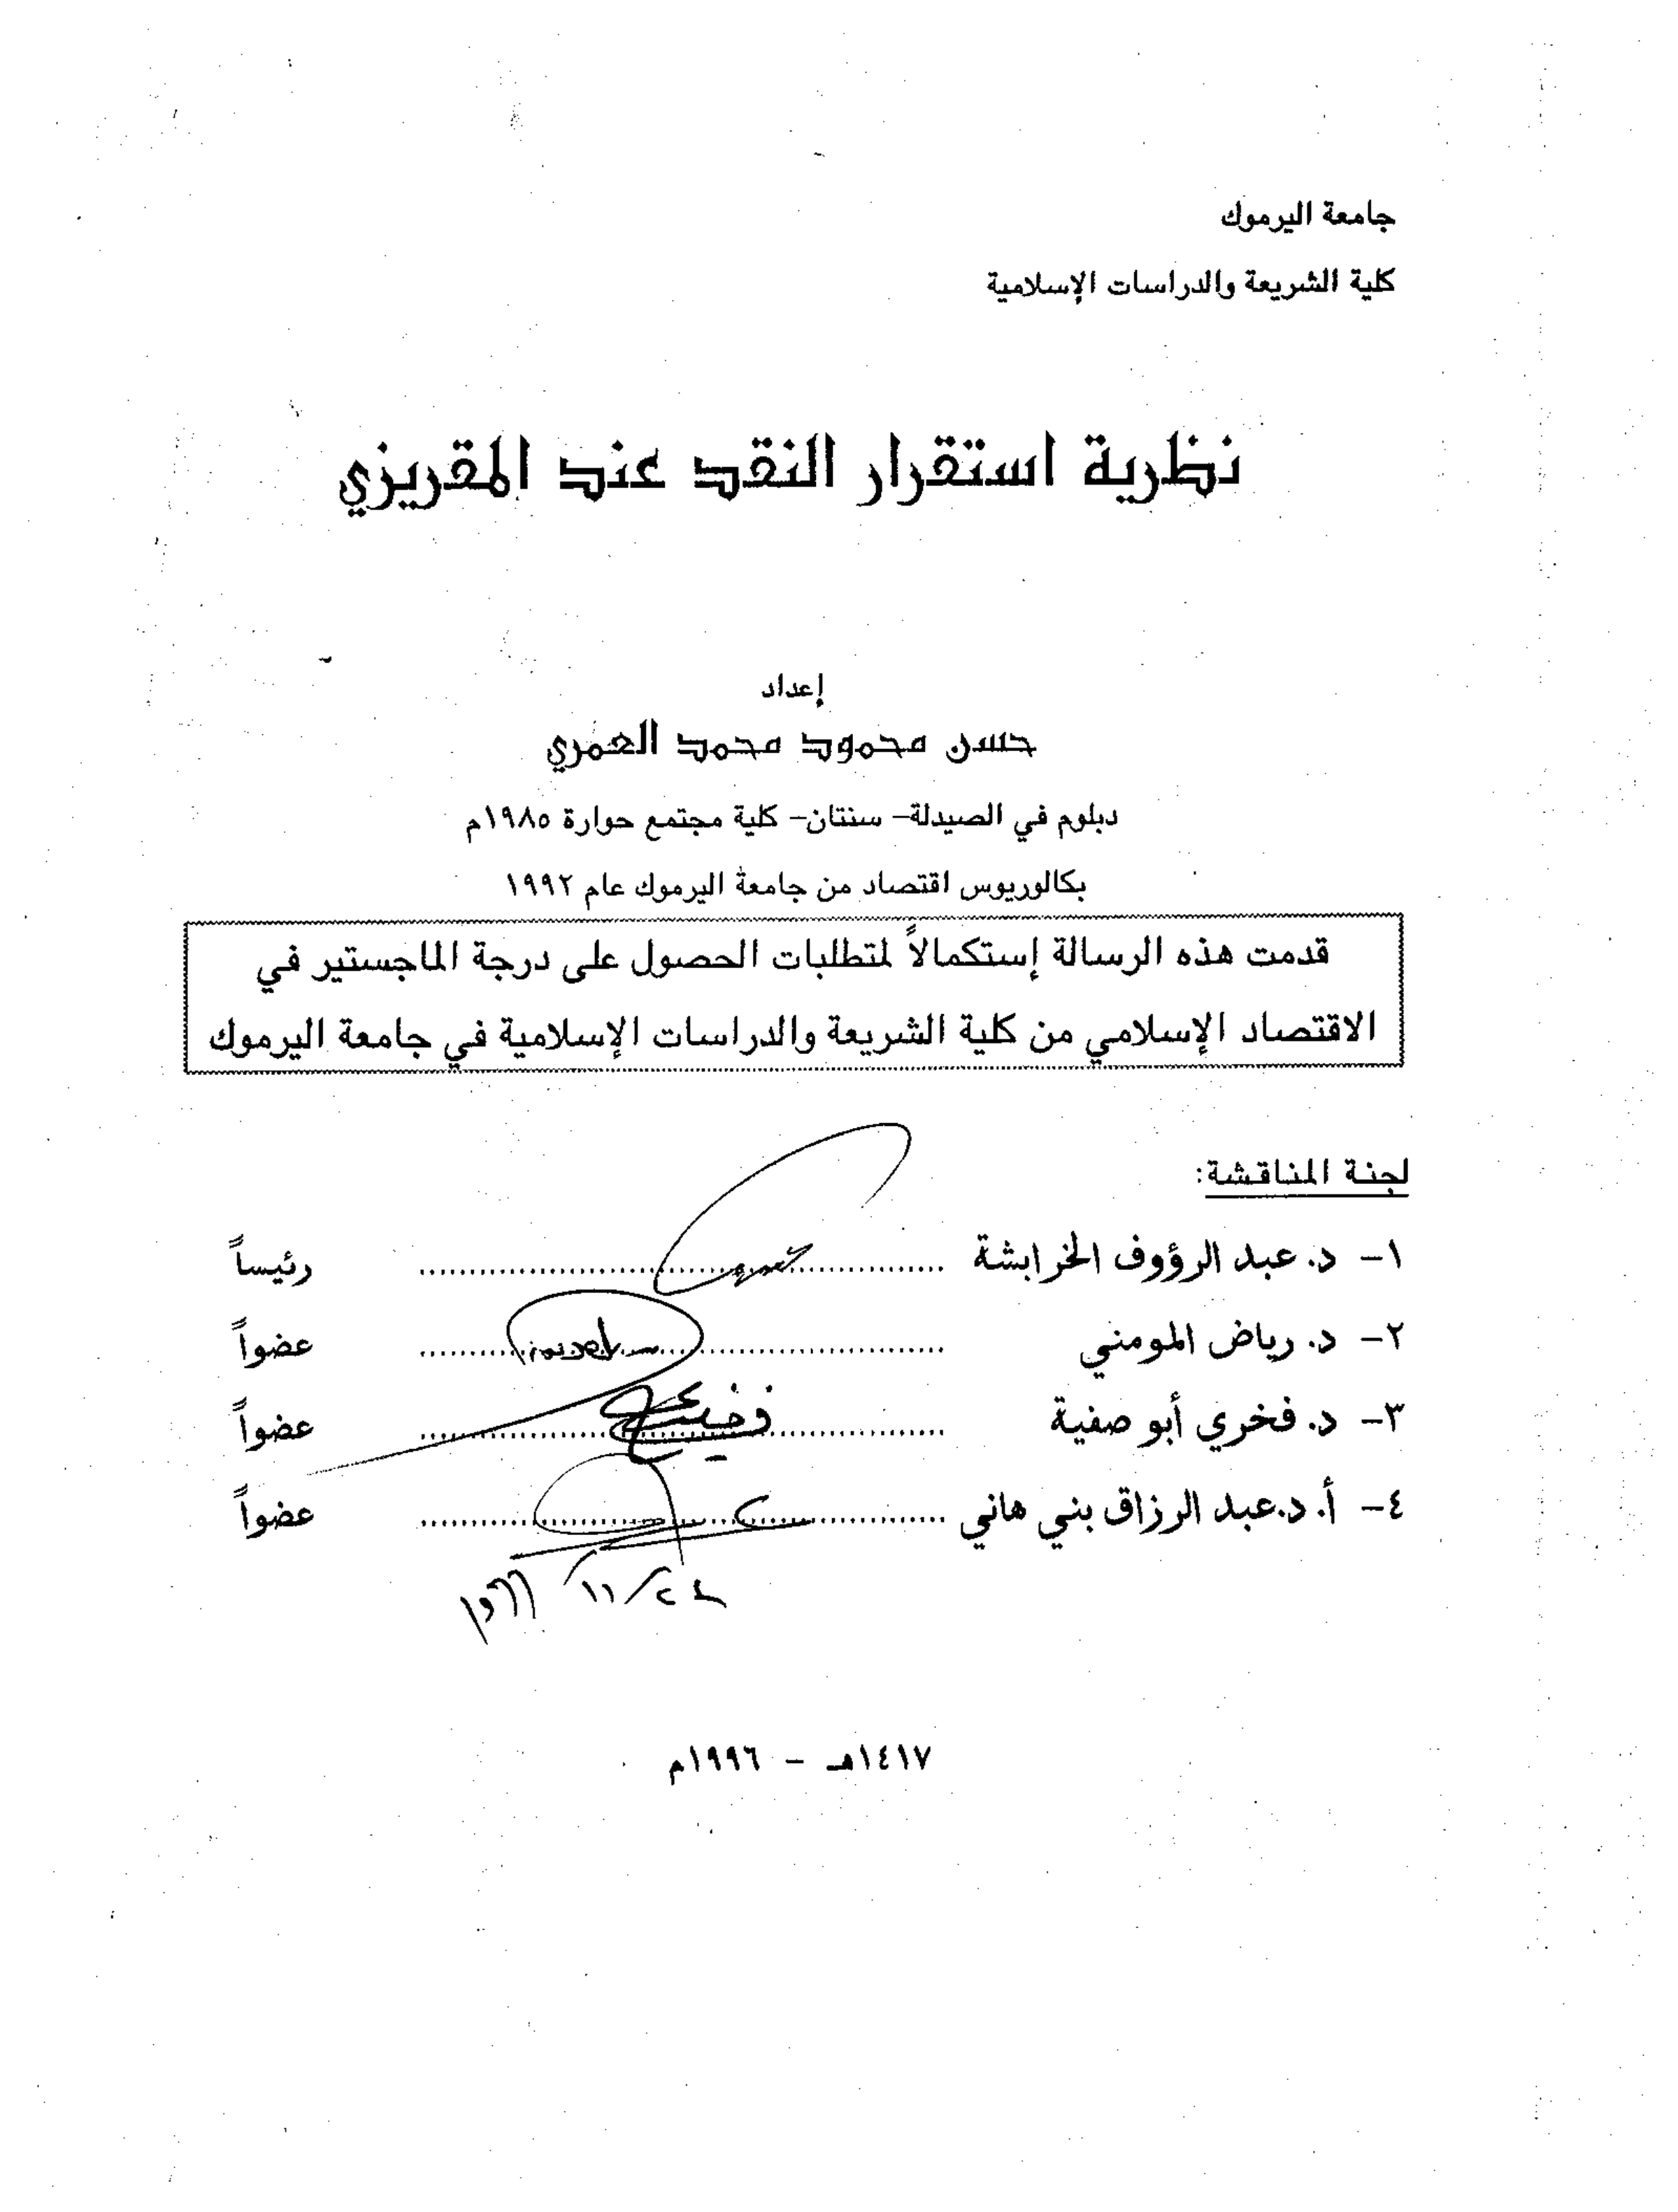 جامعة اليرموك
كلية الشريعة والدراسات الإسلامية
نظرية استقرار النقد عند المقريزي
إعداد
حسن محمود محمد العمري
دبلوم في الصيدلة- سنتان- كلية مجتمع حوارة ١٩٨٥م
بكالوريوس اقتصاد من جامعة اليرموك عام ١٩٩٢
قدمت هذه الرسالة إستكمالاً لمتطلبات الحصول على درجة الماجستير في
الاقتصاد الإسلامي من كلية الشريعة والدراسات الإسلامية في جامعة اليرموك
لجنة المناقشة:
١- د. عبد الرؤوف الخرابشة ........ رئيساً
٢- د. رياض المومني ........ عضواً
٣- د. فخري أبو صفية ........ عضواً
٤- أ. د.عبد الرزاق بني هاني ........ عضواً
١٤١٧هـ - ١٩٩٦م